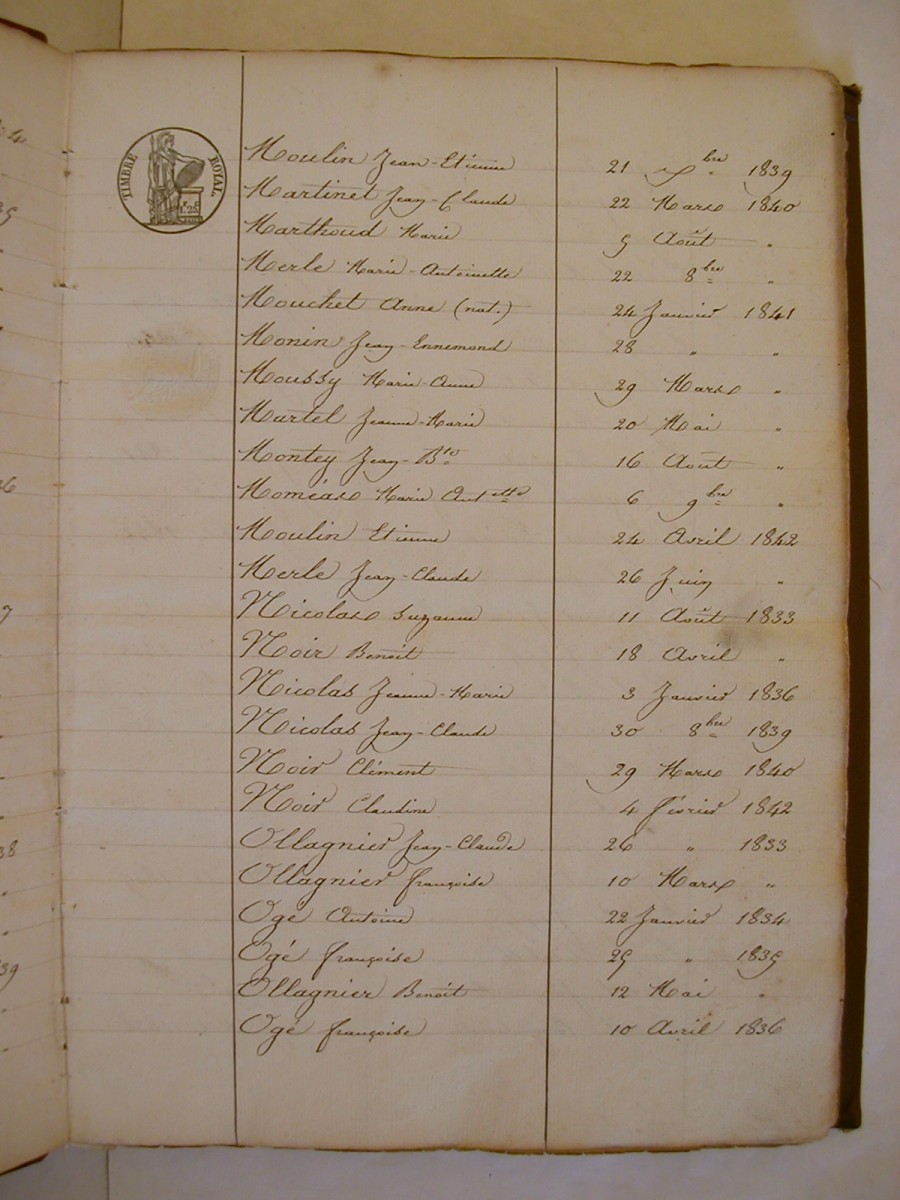 TIMBRE ROYAL
Moulin Jean-Etienne 21 Xbre 1839
Martinet Jean-Claude 22 Mars 1840
Marthoud Marie 5 Août "
Merle Marie-Antoinette 22 8bre "
Mouchet Anne (nat.) 24 Janvier 1841
Monin Jean-Ennemond 28 " "
Moussy Marie-Anne 29 Mars "
Martel Jeanne-Marie 20 Mai "
Montey Jean-Bte 16 Août "
Moméas Marie Antette 6 9bre "
Moulin Etienne 24 Avril 1842
Merle Jean-Claude 26 Juin "
Nicolas Suzanne 11 Août 1833
Noir Benoît 18 Avril "
Nicolas Jeanne-Marie 3 Janvier 1836
Nicolas Jean-Claude 30 8bre 1839
Noir Clément 29 Mars 1840
Noir Claudine 4 février 1842
Ollagnier Jean-Claude 26 " 1833
Ollagnier françoise 10 Mars "
Ogé Antoine 22 Janvier 1834
Ogé françoise 25 " 1835
Ollagnier Benoît 12 Mai "
Ogé françoise 10 Avril 1836